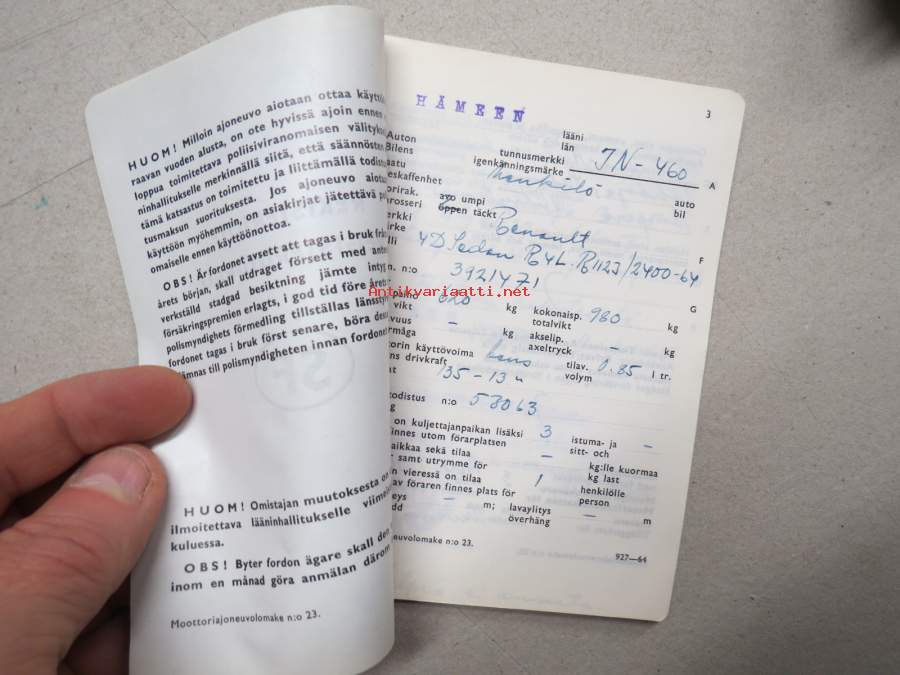 HUOM! Milloin ajoneuvo aiotaan ottaa
raavan vuoden alusta, on ote hyvissä ajoin ennen
loppua toimitettava poliisiviranomaisen
ninhallitukselle merkinnällä siitä, että
tämä katsastus on toimitettu ja liittämällä
tusmaksun suorituksesta. Jos ajoneuvo
käyttöön myöhemmin, on asiakirjat jätettävä
omaiselle ennen käyttöönottoa.
OBS! Är fordonet avsett att tagas i bruk från
årets början, skall utdraget försett med
verkställd stadgad besiktning jämte
försäkringspremien erlagts, i god tid före
polismyndighets förmedling tillställas
fordonet tagas i bruk först senare, böra
ämnas till polismyndigheten innan fordonet
HUOM! Omistajan muutoksesta on
ilmoitettava lääninhallitukselle
kuluessa.
OBS! Byter fordon ägare skall den
inom en månad göra anmälan därom
Moottoriajoneuvolomake n:o 23.
3
HÄMEEN lääni
län
Auton tunnusmerkki
Bilens igenkänningsmärke IN-460 A
aatu henkilö auto
eskaffenhet bil
orirak. avo umpi
rosseri öppen täckt
erkki Renault
irke
lli 4D Sedan R4L-R1123/2400-64 F
n. n:o 3921471 G
paino 620 kg kokonaisp. 980 kg
vikt totalvikt
vuus – kg akselip. – kg
rmåga axeltryck
torin käyttövoima bens tilav. 0.85 l tr.
ns drivkraft volym
135-13"
todistus n:o 58063
g
on kuljettajanpaikan lisäksi 3 istuma- ja –
innes utom förarplatsen sitt- och
aikkaa sekä tilaa – kg:lle kuormaa
samt utrymme för kg last
n vieressä on tilaa 1 henkilölle
av föraren finnes plats för person
eys – m; lavaylitys – m
dd överhäng
neuvolomake n:o 23. 927—64
Antikvariaatti.net